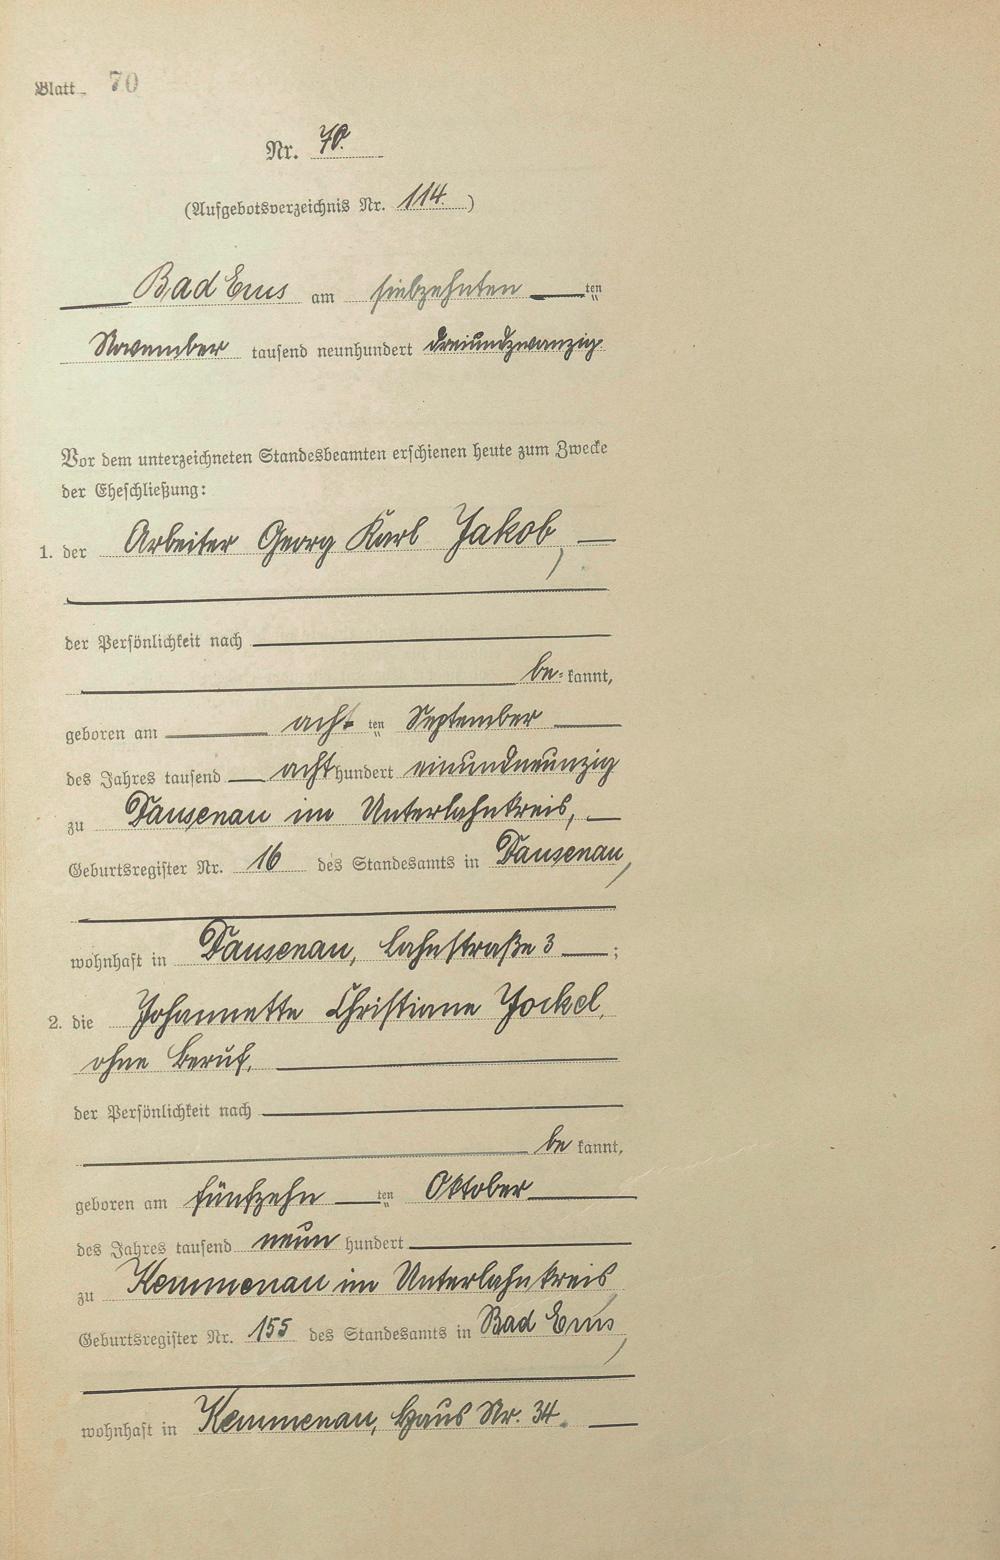 Blatt 70
Nr. 70.
(Aufgebotsverzeichnis Nr. 114.)
Bad Ems am siebzehnten ten
November tausend neunhundert dreiundzwanzig.
Vor dem unterzeichneten Standesbeamten erschienen heute zum Zwecke
der Eheschließung:
1. der Arbeiter Georg Karl Jakob,
der Persönlichkeit nach
be=kannt,
geboren am acht ten September
des Jahres tausend achthundert einundneunzig
zu Dausenau im Unterlahnkreis,
Geburtsregister Nr. 16 des Standesamts in Dausenau,
wohnhaft in Dausenau, Lahnstraße 3 ;
2. die Johannette Christiane Jockel,
ohne Beruf,
der Persönlichkeit nach
be kannt,
geboren am fünfzehn ten Oktober
des Jahres tausend neun hundert
zu Kemmenau im Unterlahnkreis,
Geburtsregister Nr. 155 des Standesamts in Bad Ems,
wohnhaft in Kemmenau, Haus Nr. 34.